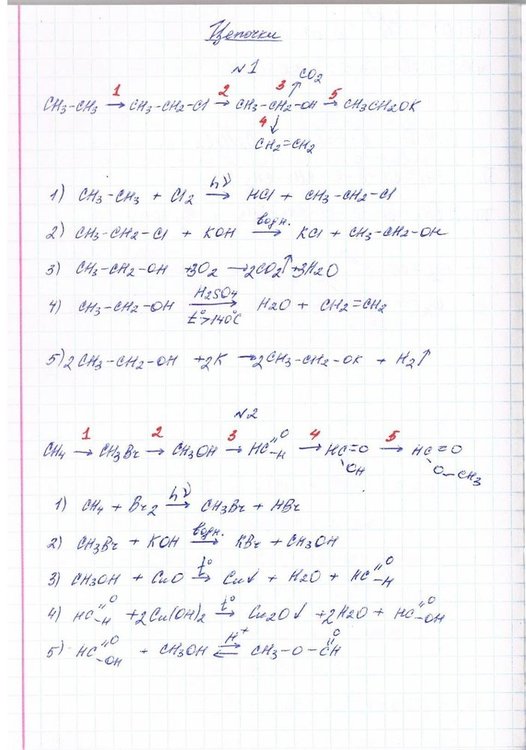 Цепочки
№1
CH3-CH3 →1 CH3-CH2-Cl →2 CH3-CH2-OH →5 CH3CH2OK
3↑ CO2
4↓
CH2=CH2
1) CH3-CH3 + Cl2 →hν HCl + CH3-CH2-Cl
2) CH3-CH2-Cl + KOH →водн. KCl + CH3-CH2-OH
3) CH3-CH2-OH +3O2 → 2CO2↑ +3H2O
4) CH3-CH2-OH →H2SO4 t°>140°C H2O + CH2=CH2
5) 2CH3-CH2-OH +2K → 2CH3-CH2-OK + H2↑
№2
CH4 →1 CH3Br →2 CH3OH →3 HC=O-H →4 HC=O OH →5 HC=O O-CH3
1) CH4 + Br2 →hν CH3Br + HBr
2) CH3Br + KOH →водн. KBr + CH3OH
3) CH3OH + CuO →t° Cu↓ + H2O + HC=O-H
4) HC=O-H +2Cu(OH)2 →t° Cu2O↓ +2H2O + HC=O-OH
5) HC=O-OH + CH3OH ⇌H+ CH3-O-CH=O